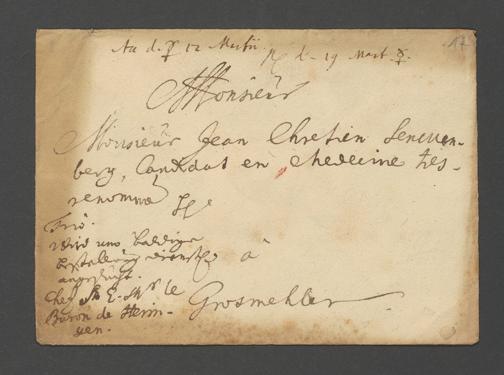 12 Martii. 19 Mart.
17
Monsieur
Monsieur Jean Chretien Sencken-
berg, Candidat en Medecine tres-
renommé
à
Frco.
wird um baldige
bestellung dienstl.
angesucht.
Chez S. E. Mr le
Baron de Herin-
gen.
Grosmehler